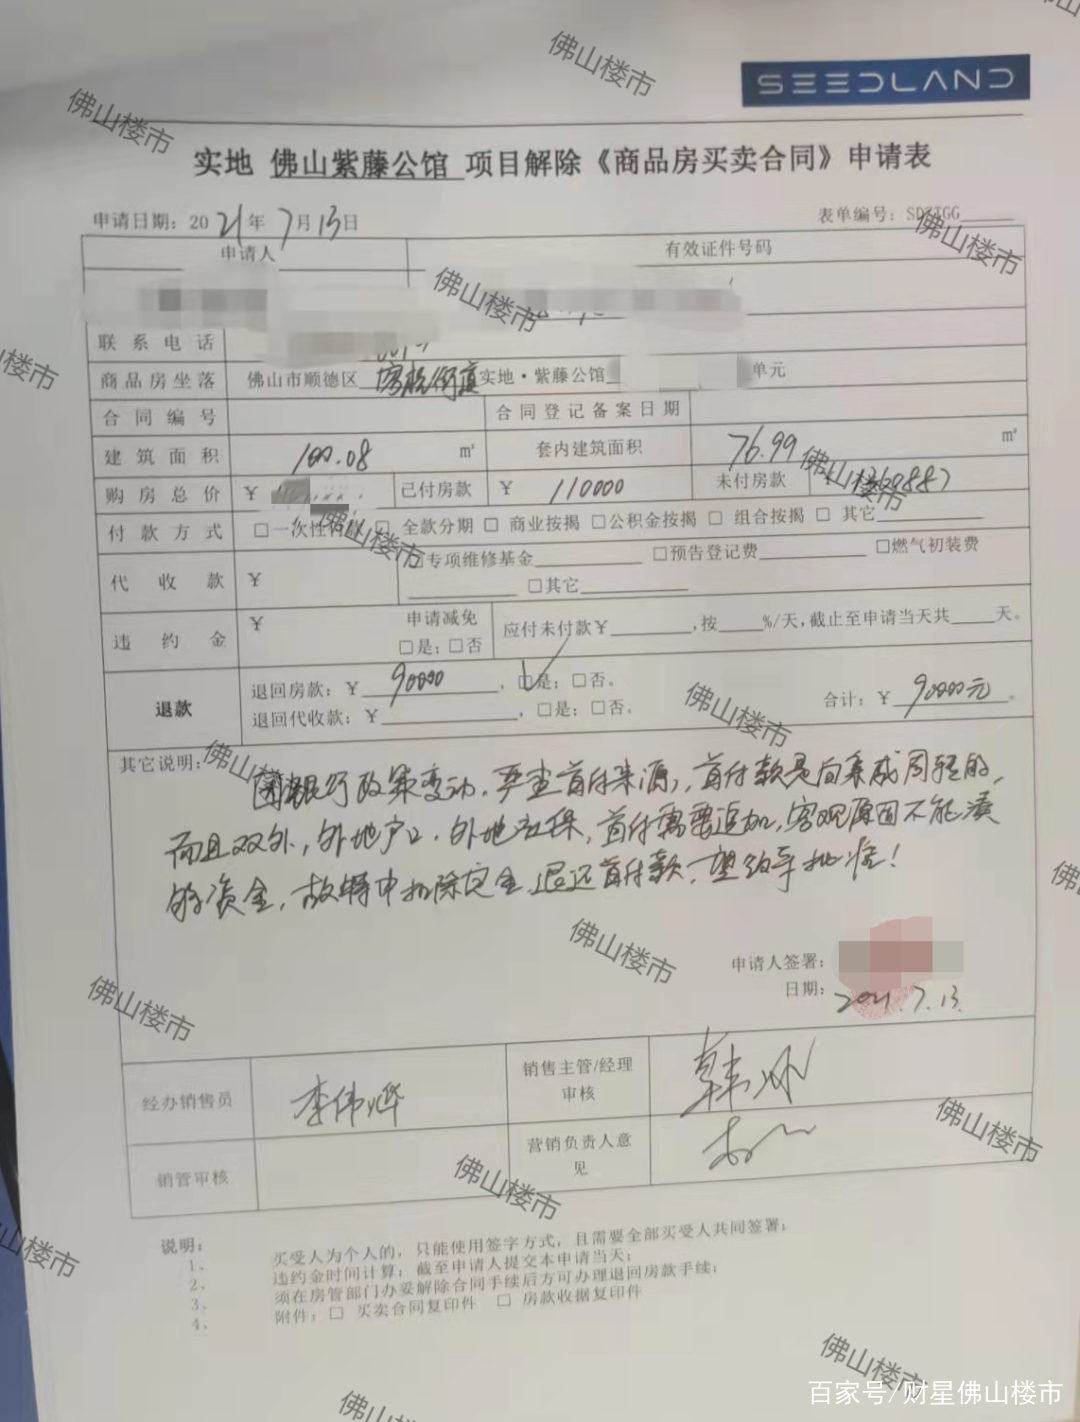 SEEDLAND
实地 佛山紫藤公馆 项目解除《商品房买卖合同》申请表
申请日期：2021年7月13日
表单编号：SDZTGG
申请人 有效证件号码
联系电话
商品房坐落 佛山市顺德区 街道实地·紫藤公馆 单元
合同编号 合同登记备案日期
建筑面积 100.08 ㎡ 套内建筑面积 76.99 ㎡
购房总价 ￥ 已付房款 ￥ 110000 未付房款
付款方式 □一次性付款 □ 全款分期 □ 商业按揭 □公积金按揭 □ 组合按揭 □ 其它
代收款 ￥ □专项维修基金 □预告登记费 □燃气初装费
□其它
违约金 ￥ 申请减免 □是；□否 应付未付款￥ ，按 %/天，截止至申请当天共 天。
退款 退回房款：￥ 90000 ，□是；□否。 合计：￥ 90000元 。
退回代收款：￥ ，□是；□否。
其它说明：
因银行政策变动，严查首付来源，首付款是向亲戚周转的，
而且双外，外地户口，外地社保，首付需要追加，客观原因不能凑
的资金，故特申扣除定金，退还首付款，望给予批准！
申请人签署：
日期：2021.7.13
经办销售员 李伟烨 销售主管/经理审核
销管审核 营销负责人意见
说明：
1、 买受人为个人的，只能使用签字方式，且需要全部买受人共同签署；
2、 违约金时间计算：截至申请人提交本申请当天；
3、 须在房管部门办妥解除合同手续后方可办理退回房款手续；
4、 附件：□ 买卖合同复印件 □ 房款收据复印件
佛山楼市
佛山楼市
佛山楼市
佛山楼市
佛山楼市
佛山楼市
佛山楼市
佛山楼市
佛山楼市
佛山楼市
佛山楼市
佛山楼市
佛山楼市
佛山楼市
百家号/财星佛山楼市